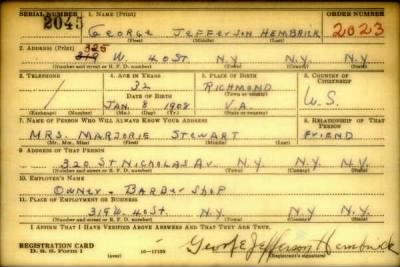 SERIAL NUMBER 1. NAME (Print) ORDER NUMBER
2045 GEORGE JEFFERSON HEMBRICK 2023
(First) (Middle) (Last)
2. ADDRESS (Print) 325
319 W. 40 ST. N.Y. N.Y. N.Y.
(Number and street or R. F. D. number) (Town) (County) (State)
3. TELEPHONE 4. AGE IN YEARS 5. PLACE OF BIRTH 6. COUNTRY OF CITIZENSHIP
32 RICHMOND
DATE OF BIRTH (Town or county)
JAN. 8 1908 V.A. U.S.
(Exchange) (Number) (Mo.) (Day) (Yr.) (State or country)
7. NAME OF PERSON WHO WILL ALWAYS KNOW YOUR ADDRESS 8. RELATIONSHIP OF THAT PERSON
MRS. MARJORIE STEWART FRIEND
(Mr., Mrs., Miss) (First) (Middle) (Last)
9. ADDRESS OF THAT PERSON
320 ST. NICHOLAS AV. N.Y. N.Y. N.Y.
(Number and street or R. F. D. number) (Town) (County) (State)
10. EMPLOYER'S NAME
OWNER - BARBER SHOP
11. PLACE OF EMPLOYMENT OR BUSINESS
319 W. 40 ST. N.Y. N.Y. N.Y.
(Number and street or R. F. D. number) (Town) (County) (State)
I AFFIRM THAT I HAVE VERIFIED ABOVE ANSWERS AND THAT THEY ARE TRUE.
REGISTRATION CARD George Jefferson Hembrick
D. S. S. Form 1 (Registrant's signature)